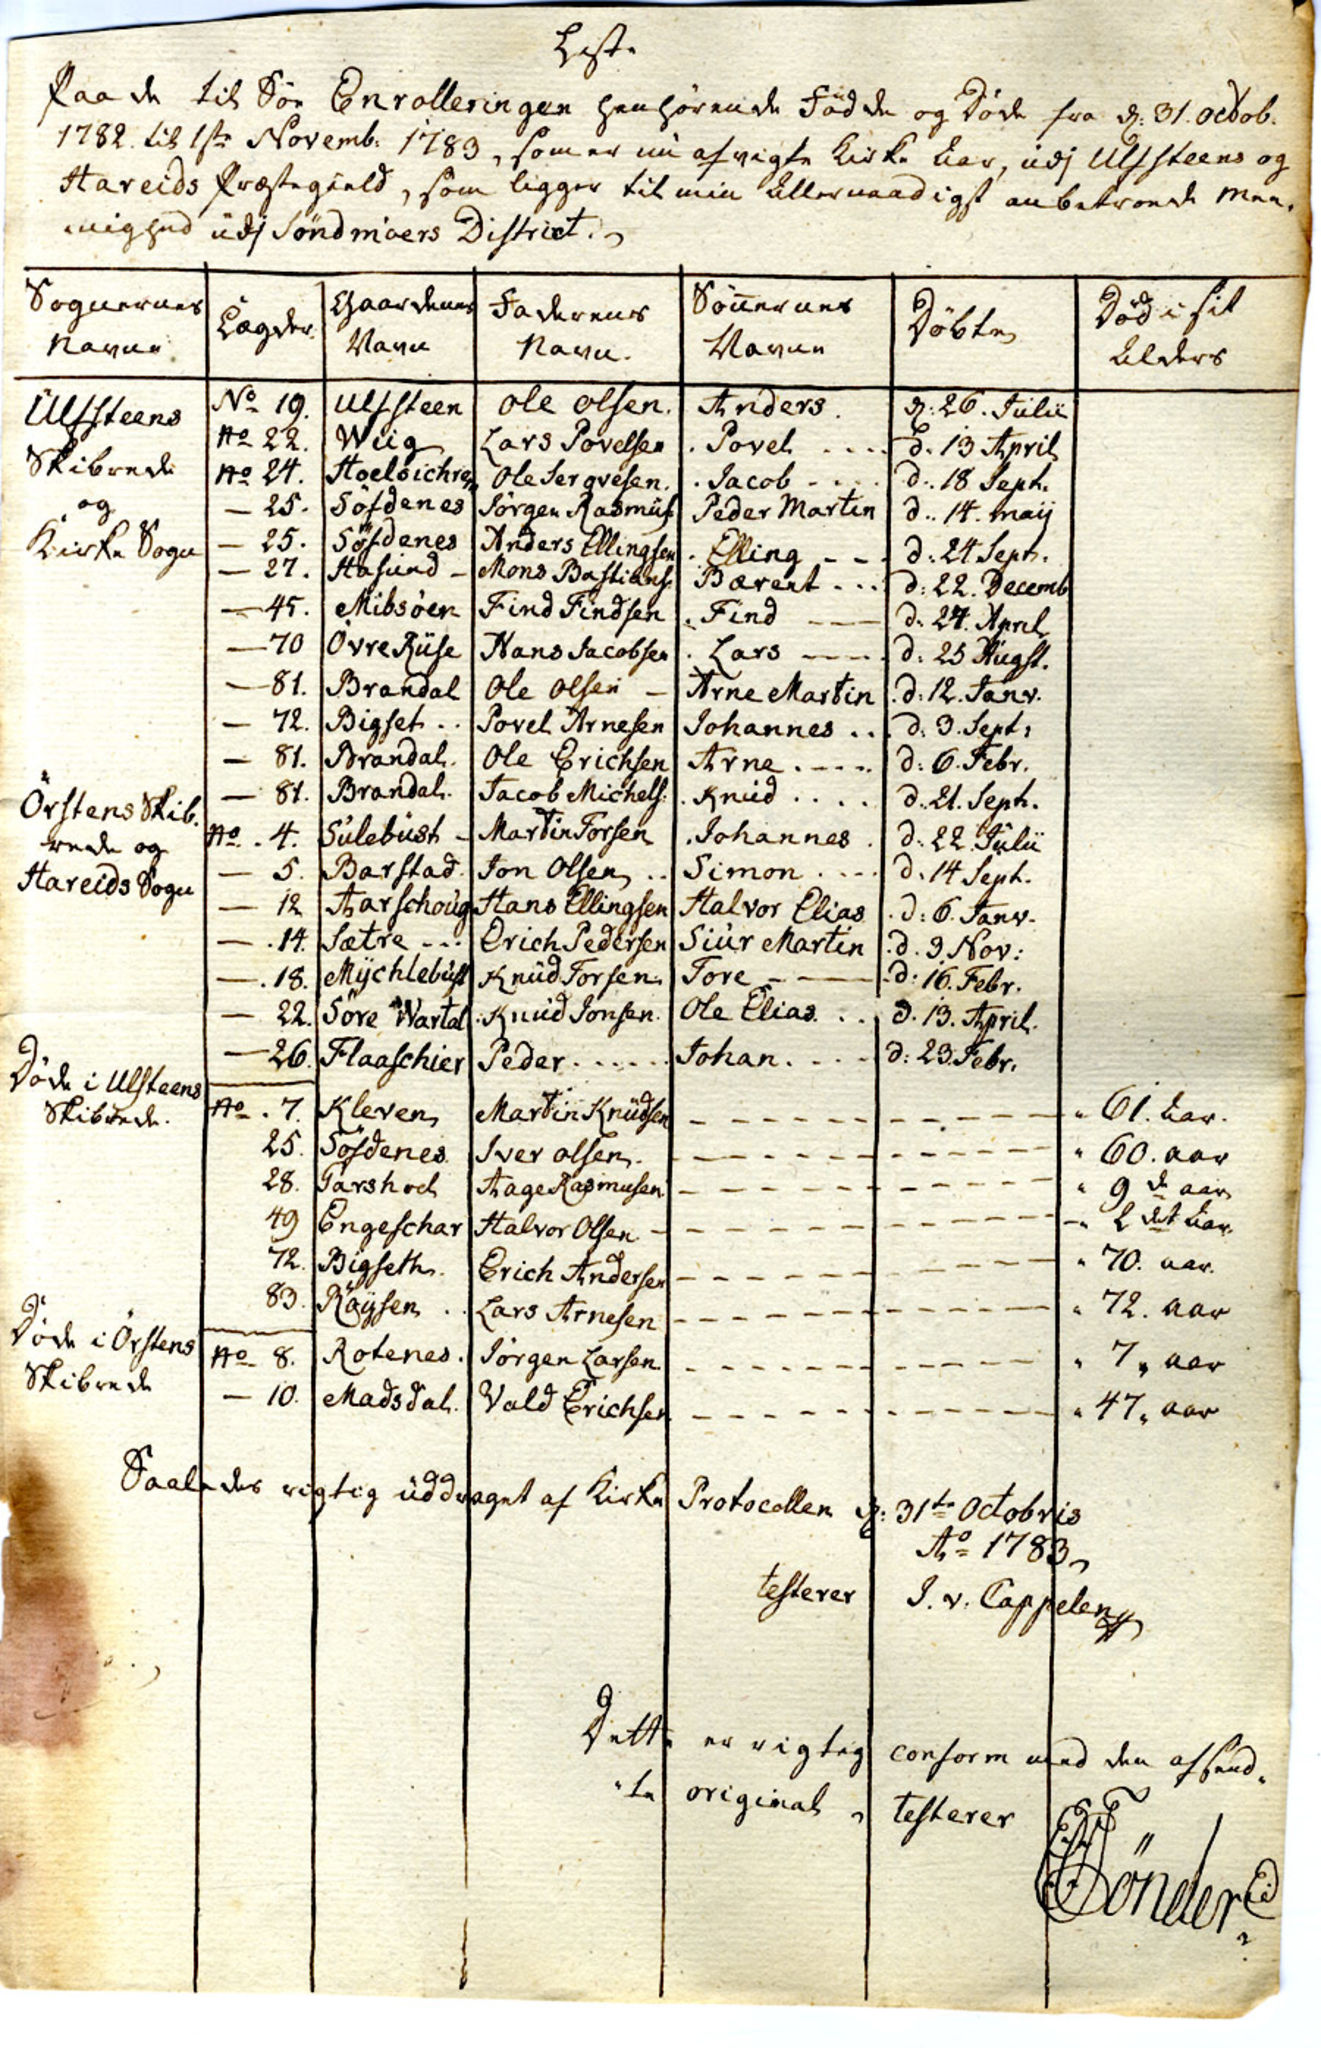 Liste
Paa de til Söe Enrolleringen henhörende Födde og Döde fra d: 31. octob:
1782. til 1ste Novemb: 1783, som er nu afvigte Kirke Aar, udj Ulfsteens og
Hareids Præstegield, som ligger til min Allernaadigst anbetroede Mee-
nighed udj Söndmöers District.
Sognernes Navne | Lægder | Gaardenes Navn | Faderenes Navn. | Sönnernes Navne | Döbte | Död i sit Alders
Ulfsteens | No 19. | Ulfsteen | Ole Olsen. | Anders. | d: 26. Julii
Skibrede | No 22. | Wiig | Lars Povelsen | Povel | d. 13 April
No 24. | Ole Sergvesen. | Jacob | d. 18 Sept.
og | 25. | Söfdenes | Jörgen Rasmus | Peder Martin | d. 14. maij
Kirke Sogn | 25. | Söfdenes | Anders Ellingsen | Elling | d: 24 Sept.
27. | Hasund | Mons Bastians. | Bærent | d: 22. Decemb
45. | Mibsöen | Find Findsen | Find | d: 24. April
70 | Övre Rüse | Hans Jacobsen | Lars | d: 25 Augst.
81. | Brandal | Ole Olsen | Arne Martin | d: 12. Janv.
72. | Bigset | Povel Arnesen | Johannes | d. 3. Sept:
81. | Brandal. | Ole Erichsen | Arne | d: 6. Febr.
Örstens Skib- | 81. | Brandal. | Jacob Michels. | Knud | d. 21. Sept.
rede og | No 4. | Sulebust | Martin Torsen | Johannes | d: 22. Julii
Hareids Sogn | 5. | Barstad. | Jon Olsen | Simon | d. 14 Sept.
12 | Aarschoug | Hans Ellingsen | Halvor Elias | d: 6. Janv.
14. | Sætre | Erich Pedersen | Siur Martin | d. 9. Nov:
18. | Mÿchlebust | Knud Torsen | Tore | d: 16. Febr.
22. | Söre Wartal | Knud Jonsen. | Ole Elias | d. 13. April.
26. | Flaaschier | Peder | Johan. | d: 23. Febr.
Döde i Ulsteens Skibrede. | No 7. | Kleven | Martin Knudsen | 61. Aar.
25. | Söfdenes | Iver Olsen. | 60. aar
28. | Aage Rasmusen | 9 de aar
49 | Engeschar | Halvor Olsen | 2 det Aar.
72. | Bigseth. | Erich Andersen | 70. aar.
83. | Röysen | Lars Arnesen | 72. aar
Döde i Örstens Skibrede | No 8. | Rotenes. | Jörgen Larsen | 7 aar
10. | Madsdal. | Vald Erichsen | 47 aar
Saaledes rigtig uddraget af Kirke Protocollen d: 31te Octobris
Ao 1783
testerer J. v. Cappelen
Dette er rigteg conform med den afsend-
te original, testerer
Tönder